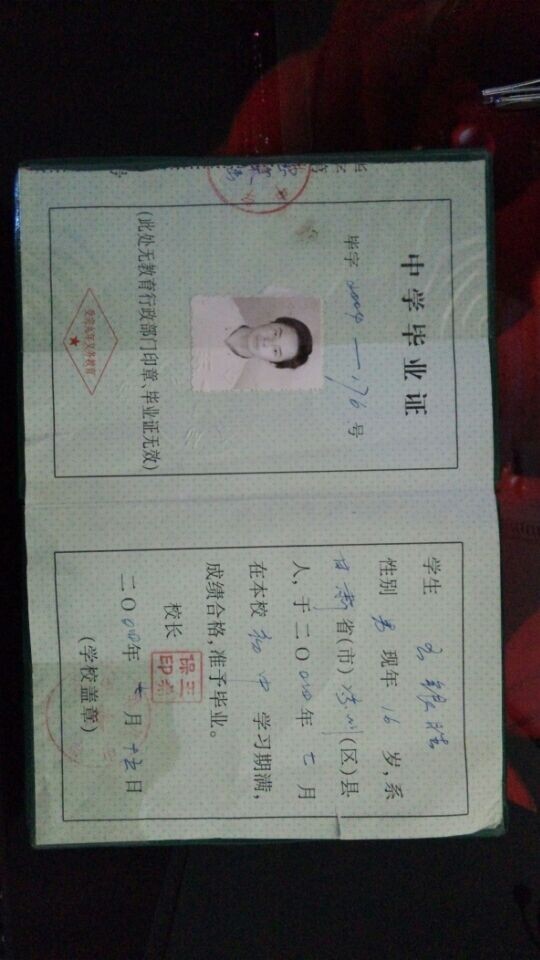 中学毕业证
毕字2004—176号
(此处无教育行政部门印章、毕业证无效)
受完九年义务教育
学生
性别 男 现年16岁,系
甘肃省(市)凉州(区)县
人,于二〇〇四年七月
在本校 初中 学习期满,
成绩合格,准予毕业。
校长
二〇〇四年七月十五日
(学校盖章)